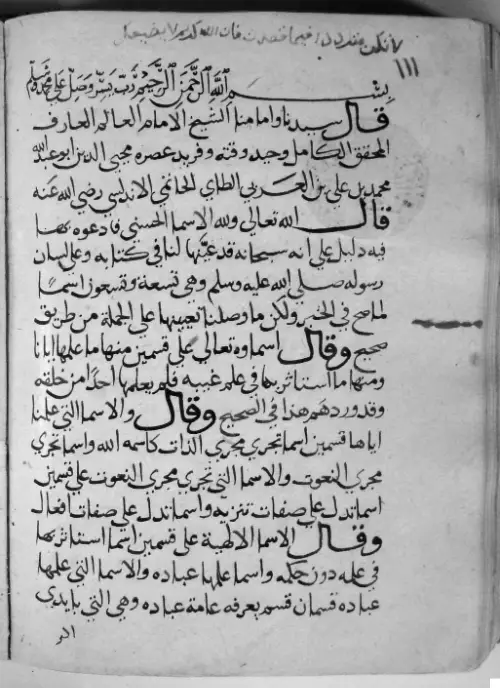 لا تكن
فان الله كريم لا يضيع
١١١
بسم الله الرحمن الرحيم رب يسر وصل على محمد وسلم
قال سيدنا وامامنا الشيخ الامام العالم العارف
المحقق الكامل وحيد وقته وفريد عصره محيي الدين ابو عبد الله
محمد بن علي بن العربي الطاي الحاتمي الاندلسي رضي الله عنه
قال الله تعالى ولله الاسما الحسنى فادعوه بها
فيه دليل على انه سبحانه قد عينها لنا في كتابه وعلى لسان
رسوله صلى الله عليه وسلم وهي تسعة وتسعون اسما
لما صح في الخبر ولكن ما وصلنا تعيينها على الجملة من طريق
صحيح وقال اسماوه تعالى على قسمين منها ما علمها ايانا
ومنها ما استاثر بها في علم غيبه فلم يعلمها احدا من خلقه
وقد ورد هذا في الصحيح وقال والاسما التي علمنا
اياها قسمين اسما تجري مجرى الذات كاسمه الله واسما تجري
مجرى النعوت والاسما التي تجري مجرى النعوت على قسمين
اسما تدل على صفات تنزيه واسما تدل على صفات افعال
وقال الاسما الالهية على قسمين اسما استاثر بها
في علمه دون خلقه واسما علمها عباده والاسما التي علمها
عباده قسمان قسم يعرفه عامة عباده وهي التي بايدي